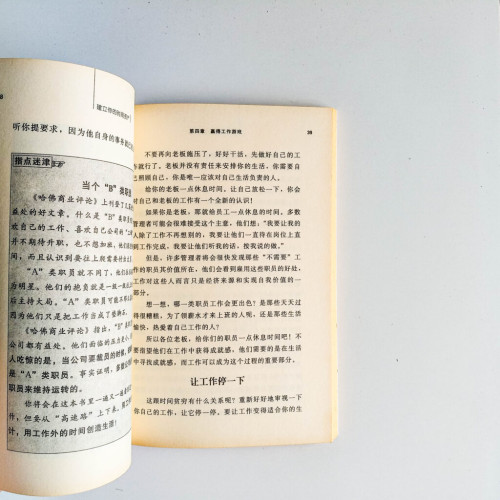 建立你的时间资产
听你提要求，因为他自身的事
指点迷津
当个“B”类职员
《哈佛商业评论》上刊登了
益处的好文章。什么是“B”类职员
欢自己的工作、喜欢自己公司的
并不期待升职，也不想加班，他们
间，而且认识到要往上爬需要
“A”类职员就不同了。他们
为明星。他们的抱负就是一级一级
后主持大局。“A”类职员可能不
因为他们只是把工作当成了
《哈佛商业评论》指出，“B”
公司都有益处。他们面临的压力
人吃惊的是，当公司要裁员的时候，
是“A”类职员。事实证明，多数
职员来维持运转的。
你将会在这本书里一遍又一遍
作，但要从“高速路”上下来。
计，用工作外的时间创造生活！
第四章 赢得工作游戏
39
不要再向老板施压了，好好干活，先做好自己的工
作就行了。老板并没有责任来安排你的生活，你需要自
己照顾自己，你是唯一应该对自己生活负责的人。
给你的老板一点休息时间，让自己放松一下，你会
对自己和老板的工作有一个全新的认识！
如果你是老板，那就给员工一点休息时间。多数
管理者可能会很难接受这个主意，他们想：“我要让我的
人除了工作不再想别的，我要让他们一直待在岗位上直
到工作完成，我要让他们听我的话，按我说的做。”
但是，许多管理者将会领快发现那些“不需要”工
作的职员其价值所在，他们会看到雇用这些职员的好处，
工作对这些人而言只是经济来源而非实现自我价值的一
部分。
想一想，哪一类职员工作会更出色？是那些天天过
得很糟糕，为了领薪水才来上班的人，还是那些生活
愉快，热爱着自己工作的人？
所以各位老板，给你们的职员一点休息时间吧！不
要指望他们在工作中获得成就感，他们需要的是在生活
中寻找成就感，而工作只可以成为这个过程的重要部分。
让工作停一下
这跟时间贫穷有什么关系呢？重新好好地审视一下
你自己的工作，让它停一停。要让工作变得适合你的生